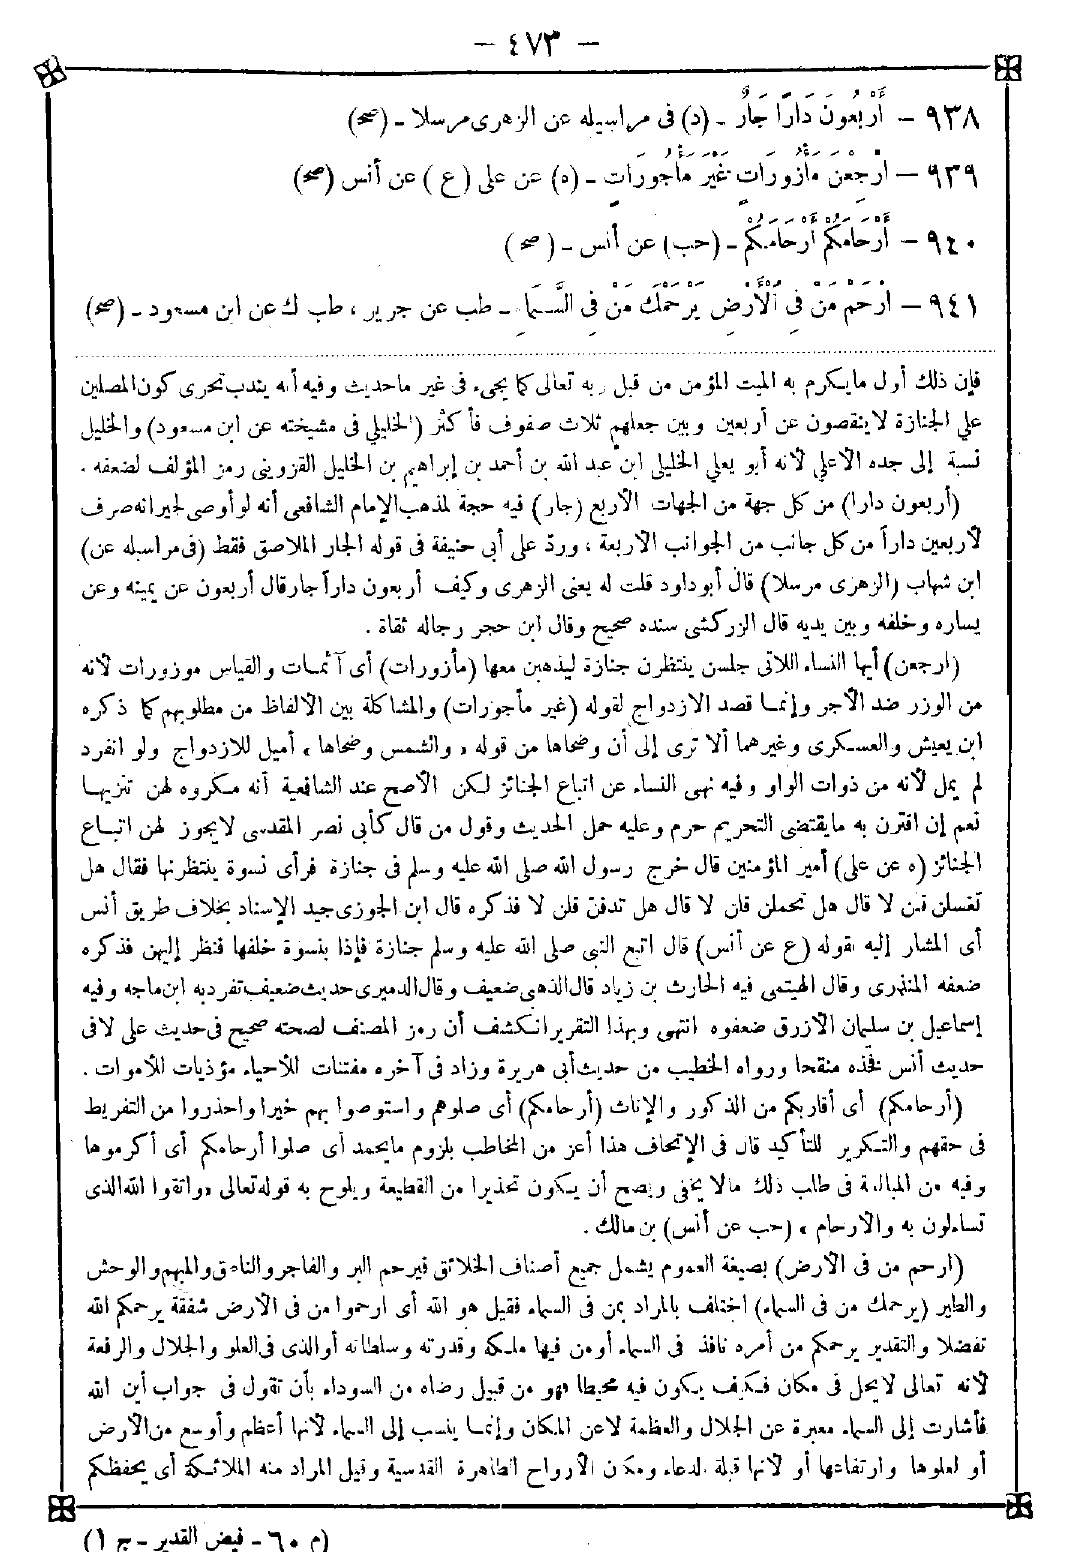 — ٤٧٣ —
٩٣٨ — أَرْبَعُونَ دَارًا جَارٌ - (د) فى مراسيله عن الزهرى مرسلا - (صح)
٩٣٩ — ارْجِعْنَ مَأْزُورَاتٍ غَيْرَ مَأْجُورَاتٍ - (ه) عن على (ع) عن أنس (صح)
٩٤٠ — أَرْحَامَكُمْ أَرْحَامَكُمْ - (حب) عن أنس - (صح)
٩٤١ — ارْحَمْ مَنْ فِى الْأَرْضِ يَرْحَمْكَ مَنْ فِى السَّمَاءِ - طب عن جرير ، طب ك عن ابن مسعود - (صح)
فإن ذلك أول ما يكرم به الميت المؤمن من قبل ربه تعالى كما يجىء فى غير ما حديث وفيه أنه يندب تحرى كون المصلين
على الجنازة لا ينقصون عن أربعين وبين جعلهم ثلاث صفوف فأكثر (الخليلي فى مشيخته عن ابن مسعود) والخليل
نسبة إلى جده الأعلي لأنه أبو يعلي الخليلى ابن عبد الله بن أحمد بن إبراهيم بن الخليل القزوينى رمز المؤلف لضعفه .
(أربعون دارا) من كل جهة من الجهات الأربع (جار) فيه حجة لمذهب الإمام الشافعى أنه لو أوصى لجيرانه صرف
لأربعين داراً من كل جانب من الجوانب الأربعة ، وردّ على أبى حنيفة فى قوله الجار الملاصق فقط (فى مراسيله عن)
ابن شهاب (الزهرى مرسلا) قال أبو داود قلت له يعنى الزهرى وكيف أربعون داراً جار قال أربعون عن يمينه وعن
يساره وخلفه وبين يديه قال الزركشى سنده صحيح وقال ابن حجر رجاله ثقاة .
(ارجعن) أيها النساء اللاتى جلسن ينتظرن جنازة ليذهبن معها (مأزورات) أى آثمات والقياس موزورات لأنه
من الوزر ضد الأجر وإنما قصد الازدواج لقوله (غير مأجورات) والمشاكلة بين الألفاظ من مطلوبهم كما ذكره
ابن يعيش والعسكرى وغيرهما ألا ترى إلى أن وضحاها من قوله « والشمس وضحاها » أميل للازدواج ولو انفرد
لم يمل لأنه من ذوات الواو وفيه نهى النساء عن اتباع الجنائز لكن الأصح عند الشافعية أنه مكروه لهن تنزيها
نعم إن اقترن به ما يقتضى التحريم حرم وعليه حمل الحديث وقول من قال كأبى نصر المقدسى لا يجوز لهن اتباع
الجنائز (ه عن على) أمير المؤمنين قال خرج رسول الله صلى الله عليه وسلم فى جنازة فرأى نسوة ينتظرنها فقال هل
تغسلن قلن لا قال هل تحملن قلن لا قال هل تدفن قلن لا فذكره قال ابن الجوزى جيد الإسناد بخلاف طريق أنس
أى المشار إليه بقوله (ع عن أنس) قال اتبع النبى صلى الله عليه وسلم جنازة فإذا بنسوة خلفها فنظر إليهن فذكره
ضعفه المنذرى وقال الهيتمى فيه الحارث بن زياد قال الذهبى ضعيف وقال الدميرى حديث ضعيف تفرد به ابن ماجه وفيه
إسماعيل بن سليمان الأزرق ضعفوه انتهى وبهذا التقرير انكشف أن رمز المصنف لصحته صحيح فى حديث على لا فى
حديث أنس فخذه منقحا ورواه الخطيب من حديث أبى هريرة وزاد فى آخره مفتنات للأحياء مؤذيات للأموات .
(أرحامكم) أى أقاربكم من الذكور والإناث (أرحامكم) أى صلوهم واستوصوا بهم خيرا واحذروا من التفريط
فى حقهم والتكرير للتأكيد قال فى الإتحاف هذا أعز من المخاطب بلزوم ما يحمد أى صلوا أرحامكم أى أكرموها
وفيه من المبالغة فى طلب ذلك مالا يخفى ويصح أن يكون تحذيرا من القطيعة ويلوح به قوله تعالى « واتقوا الله الذى
تساءلون به والأرحام » (حب عن أنس) بن مالك .
(ارحم من فى الأرض) بصيغة العموم يشمل جميع أصناف الخلائق فيرحم البر والفاجر والناطق والمبهم والوحش
والطير (يرحمك من فى السماء) اختلف بالمراد بمن فى السماء فقيل هو الله أى ارحموا من فى الأرض شفقة يرحمكم الله
تفضلا والتقدير يرحمكم من أمره نافذ فى السماء أو من فيها ملكه وقدرته وسلطانه أو الذى فى العلو والجلال والرفعة
لأنه تعالى لا يحل فى مكان فكيف يكون فيه محيطا فهو من قبيل رضاه من السوداء بأن تقول فى جواب أين الله
فأشارت إلى السماء معبرة عن الجلال والعظمة لا عن المكان وإنما ينسب إلى السماء لأنها أعظم وأوسع من الأرض
أو لعلوها وارتفاعها أو لأنها قبلة الدعاء ومكان الأرواح الطاهرة القدسية وقيل المراد منه الملائكة أى يحفظكم
(م ٦٠ - فيض القدير - ج ١)